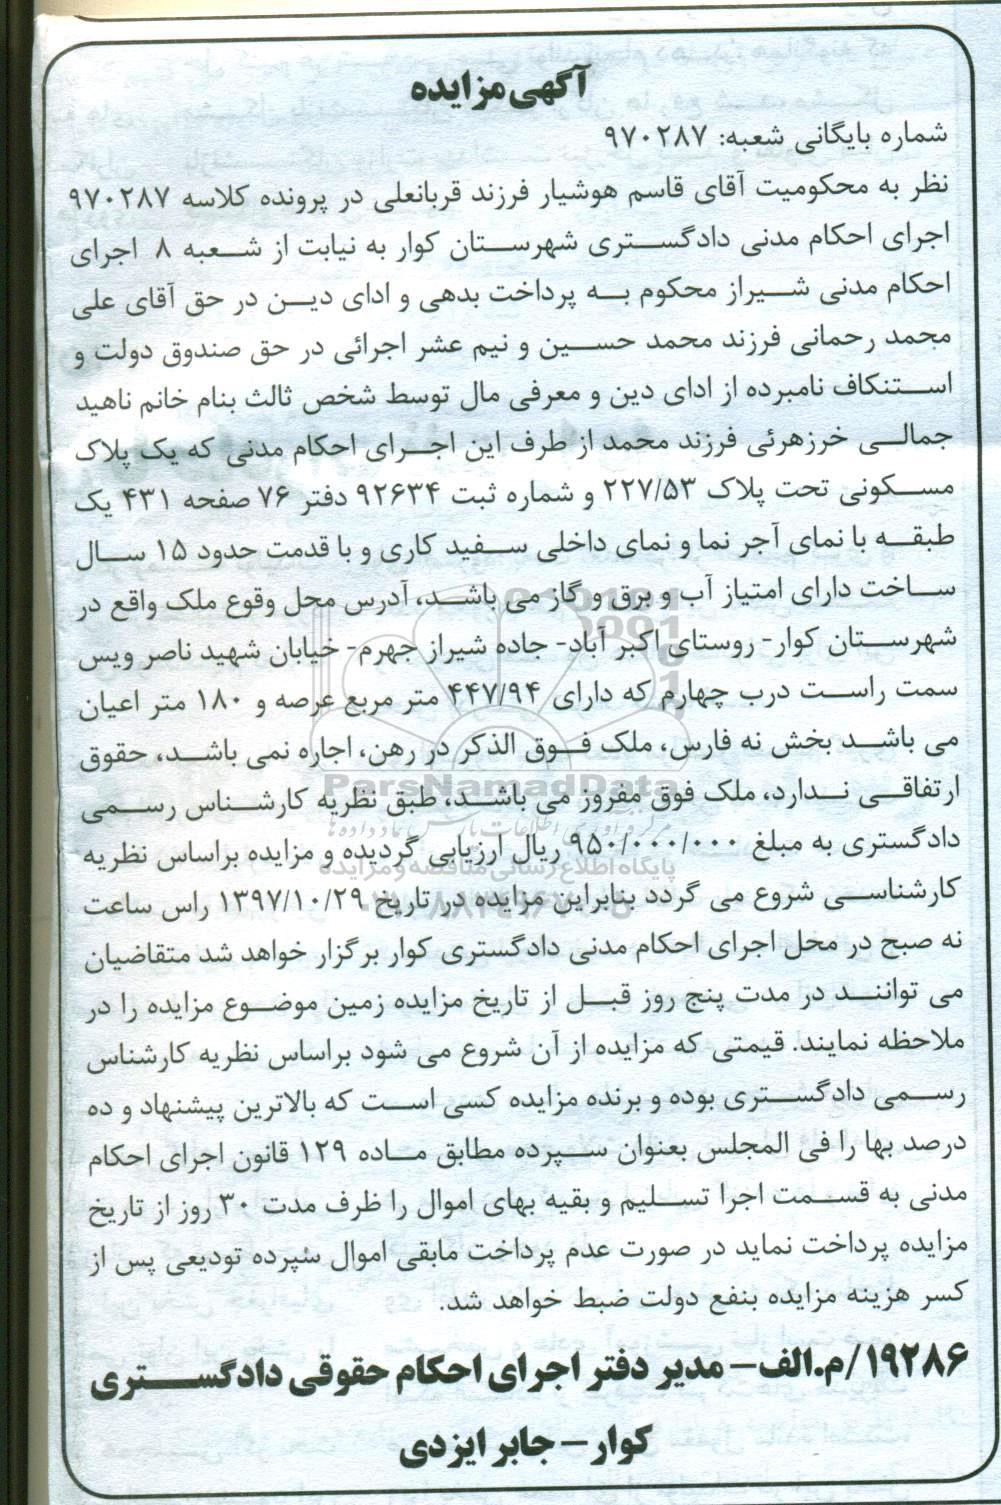 آگهی مزایده
شماره بایگانی شعبه: ۹۷۰۲۸۷
نظر به محکومیت آقای قاسم هوشیار فرزند قربانعلی در پرونده کلاسه ۹۷۰۲۸۷
اجرای احکام مدنی دادگستری شهرستان کوار به نیابت از شعبه ۸ اجرای
احکام مدنی شیراز محکوم به پرداخت بدهی و ادای دین در حق آقای علی
محمد رحمانی فرزند محمد حسین و نیم عشر اجرائی در حق صندوق دولت و
استنکاف نامبرده از ادای دین و معرفی مال توسط شخص ثالث بنام خانم ناهید
جمالی خرزهرئی فرزند محمد از طرف این اجرای احکام مدنی که یک پلاک
مسکونی تحت پلاک ۲۲۷/۵۳ و شماره ثبت ۹۲۶۳۴ دفتر ۷۶ صفحه ۴۳۱ یک
طبقه با نمای آجر نما و نمای داخلی سفید کاری و با قدمت حدود ۱۵ سال
ساخت دارای امتیاز آب و برق و گاز می باشد، آدرس محل وقوع ملک واقع در
شهرستان کوار- روستای اکبر آباد- جاده شیراز جهرم- خیابان شهید ناصر ویس
سمت راست درب چهارم که دارای ۴۴۷/۹۴ متر مربع عرصه و ۱۸۰ متر اعیان
می باشد بخش نه فارس، ملک فوق الذکر در رهن، اجاره نمی باشد، حقوق
ارتفاقی ندارد، ملک فوق مفروز می باشد، طبق نظریه کارشناس رسمی
دادگستری به مبلغ ۹۵۰/۰۰۰/۰۰۰ ریال ارزیابی گردیده و مزایده براساس نظریه
کارشناسی شروع می گردد بنابراین مزایده در تاریخ ۱۳۹۷/۱۰/۲۹ راس ساعت
نه صبح در محل اجرای احکام مدنی دادگستری کوار برگزار خواهد شد متقاضیان
می توانند در مدت پنج روز قبل از تاریخ مزایده زمین موضوع مزایده را در
ملاحظه نمایند. قیمتی که مزایده از آن شروع می شود براساس نظریه کارشناس
رسمی دادگستری بوده و برنده مزایده کسی است که بالاترین پیشنهاد و ده
درصد بها را فی المجلس بعنوان سپرده مطابق ماده ۱۲۹ قانون اجرای احکام
مدنی به قسمت اجرا تسلیم و بقیه بهای اموال را ظرف مدت ۳۰ روز از تاریخ
مزایده پرداخت نماید در صورت عدم پرداخت مابقی اموال سپرده تودیعی پس از
کسر هزینه مزایده بنفع دولت ضبط خواهد شد.
۱۹۲۸۶/م.الف- مدیر دفتر اجرای احکام حقوقی دادگستری
کوار - جابر ایزدی
ParsNamadData
پایگاه اطلاع رسانی مناقصه و مزایده